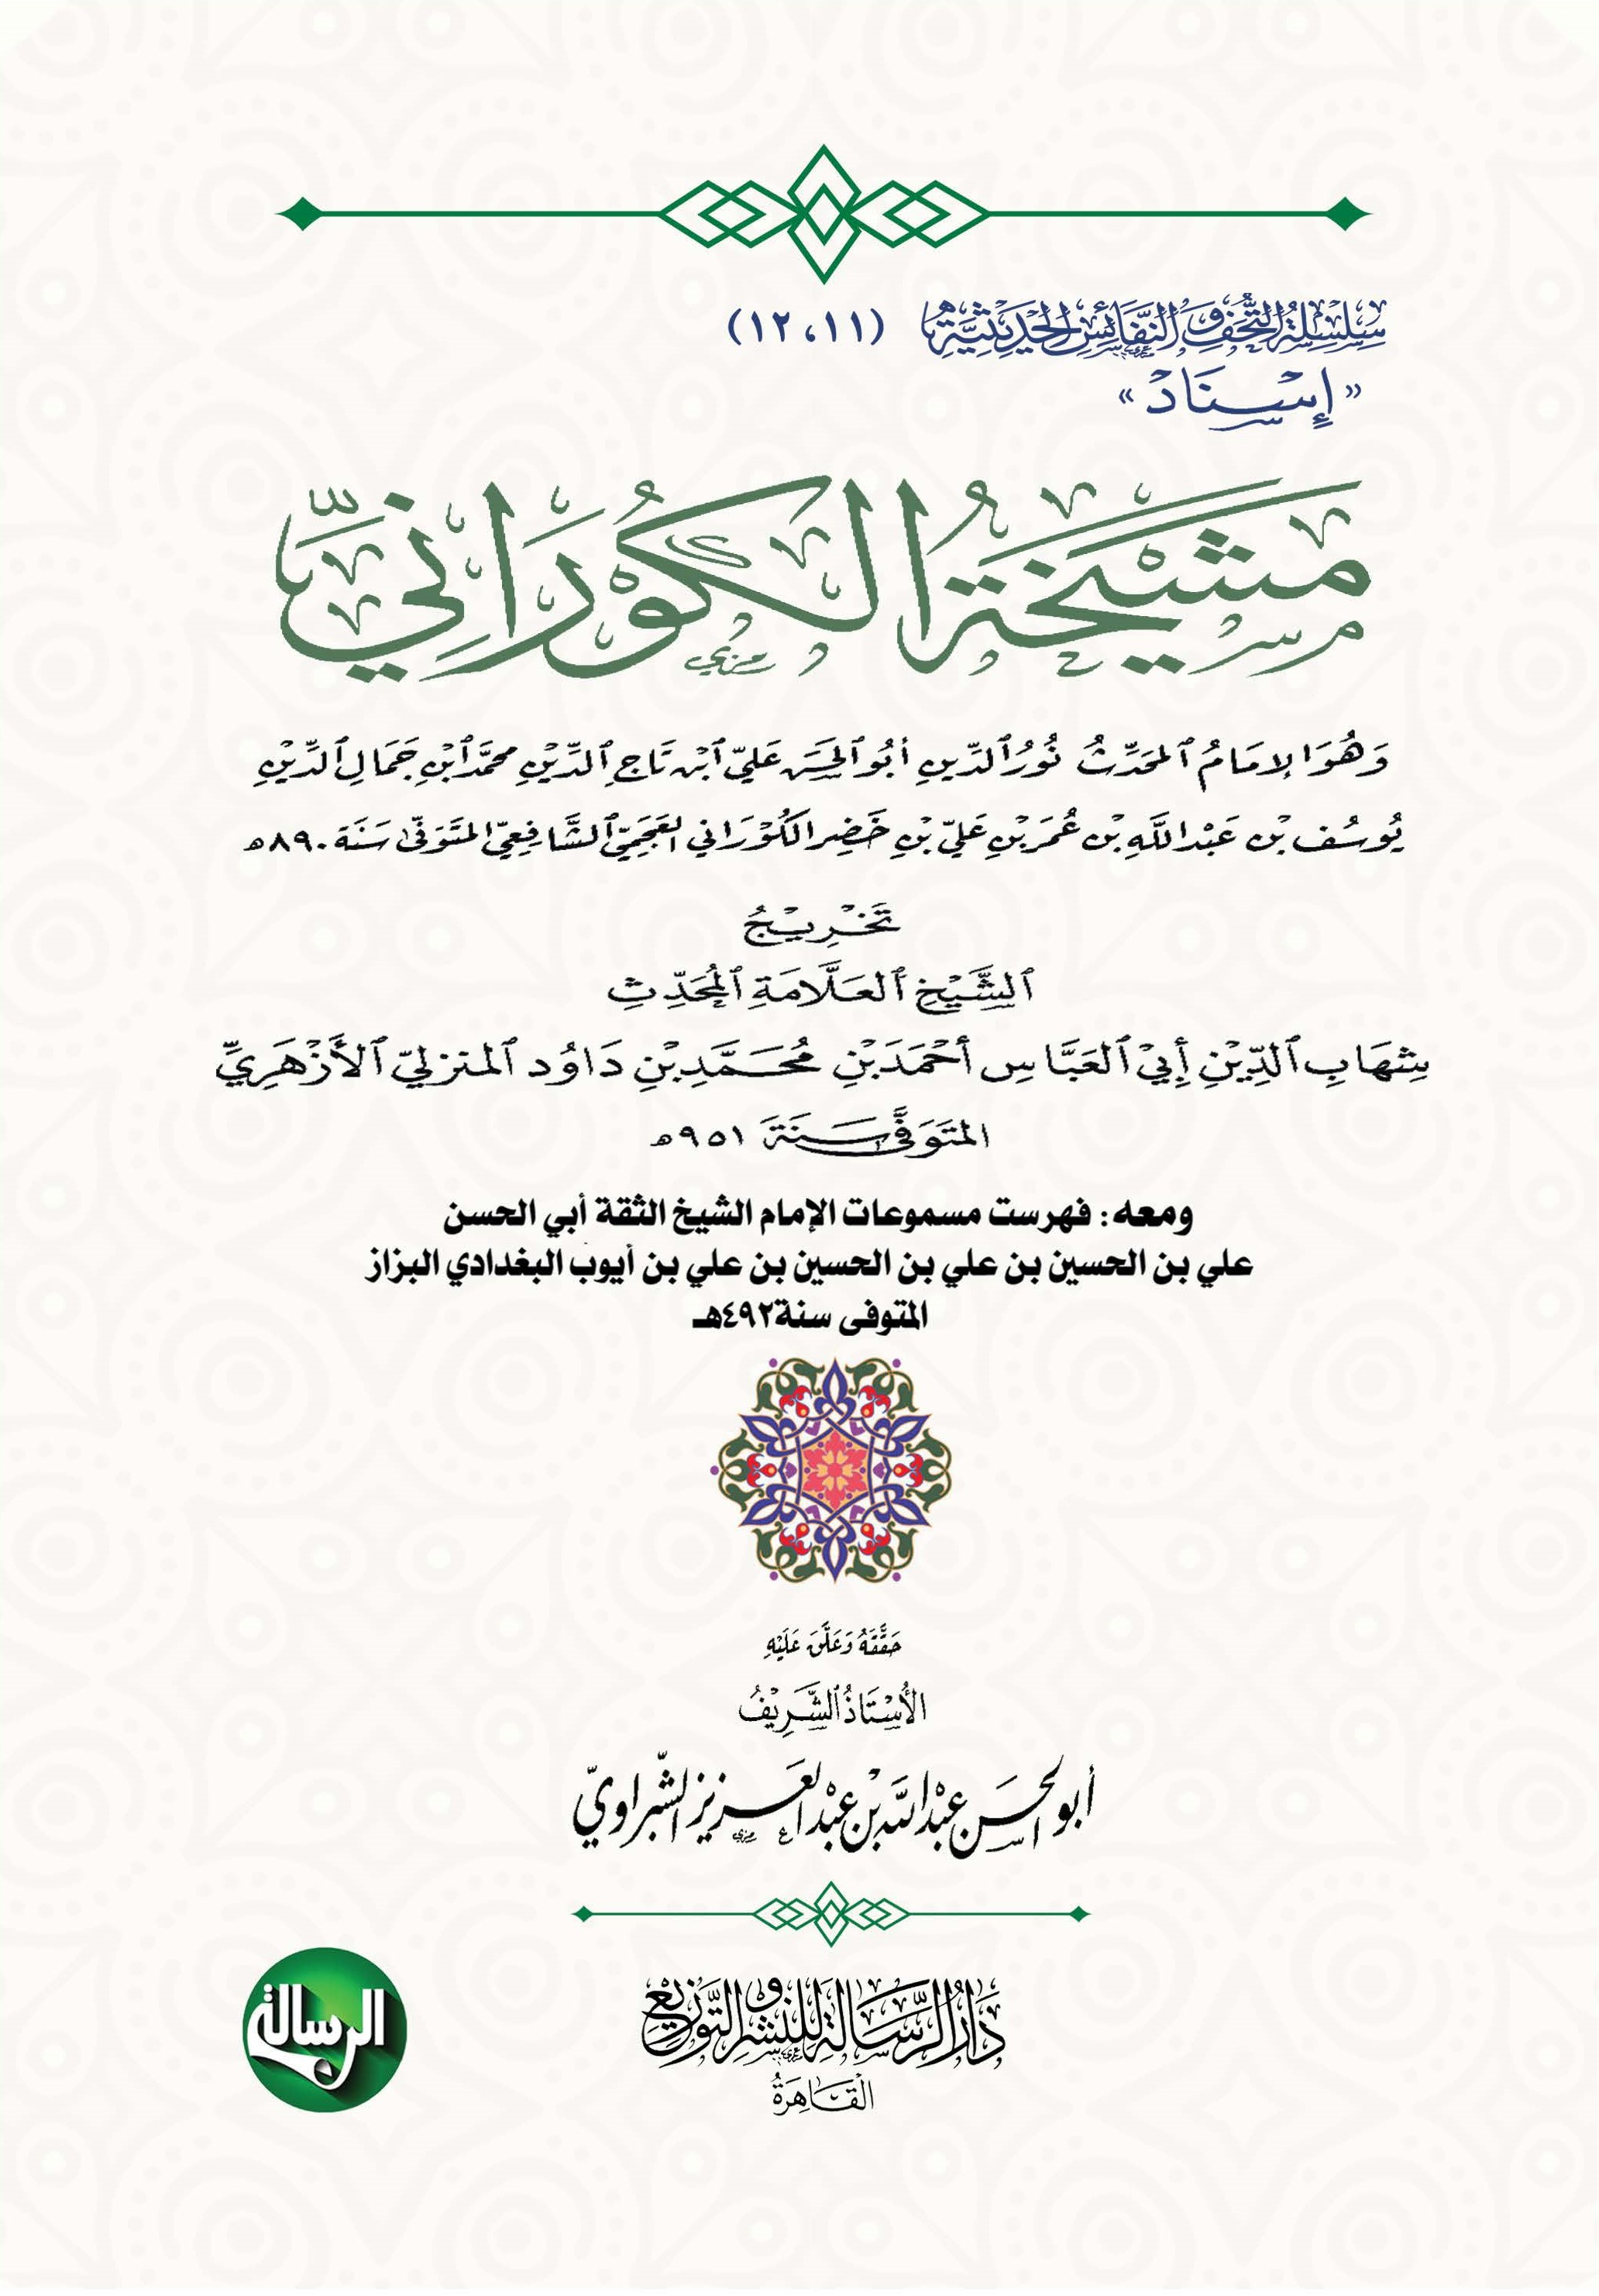 سِلْسِلَةُ التُّحَفِ وَالنَّفَائِسِ الحَدِيثِيَّةِ (١١، ١٢)
«إِسْنَاد»
مَشْيَخَةُ الكُورَانِيِّ
وَهُوَ الإِمَامُ ٱلمُحَدِّثُ نُورُ ٱلدِّينِ أَبُو ٱلحَسَنِ عَلِيّ ٱبْنِ تَاجِ ٱلدِّيْنِ محمَّد ٱبْنِ جَمَالِ ٱلدِّيْنِ
يُوسُف بْنِ عَبْدِ اللَّهِ بْنِ عُمَرَ بْنِ عَلِيّ بْنِ خَضِرِ الكُوْرَانِي العَجَمِيّ ٱلشَّافِعِيّ المُتَوَفَّى سَنَة ٨٩٠هـ
تَخْرِيْجُ
ٱلشَّيْخِ ٱلعَلَّامَةِ ٱلمُحَدِّثِ
شِهَابِ ٱلدِّيْنِ أَبِيْ ٱلعَبَّاسِ أَحْمَدَ بْنِ مُحَمَّدِ بْنِ دَاوُد ٱلمنزليّ ٱلأَزْهَرِيِّ
المُتَوَفَّى سَنَةَ ٩٥١هـ
ومعه: فهرست مسموعات الإمام الشيخ الثقة أبي الحسن
علي بن الحسين بن علي بن الحسين بن علي بن أيوب البغدادي البزاز
المتوفى سنة٤٩٢هـ
حَقَّقَهُ وَعَلَّقَ عَلَيْهِ
الأُسْتَاذُ ٱلشَّرِيْفُ
أبو الحسَن عبْد الله بْن عبْد العَزيز الشّبراويّ
دَارُ الرِّسَالَةِ لِلنَّشْرِ وَالتَّوْزِيْعِ
القَاهِرَةُ
الرسالة